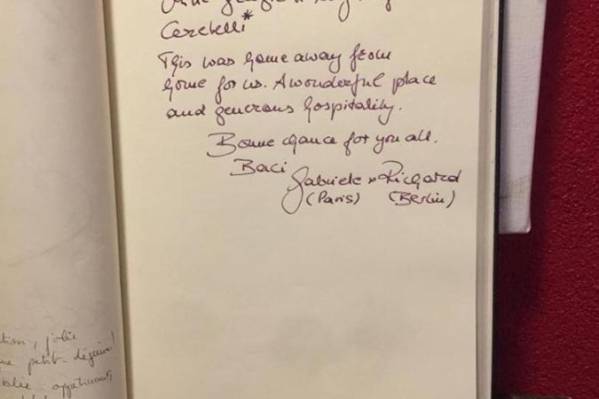 Cerchelli*
This was home away from
home for us. A wonderful place
and generous hospitality.
Bonne chance for you all.
Baci
Gabriele + Richard
(Paris) (Berlin)
petit-déjeuner